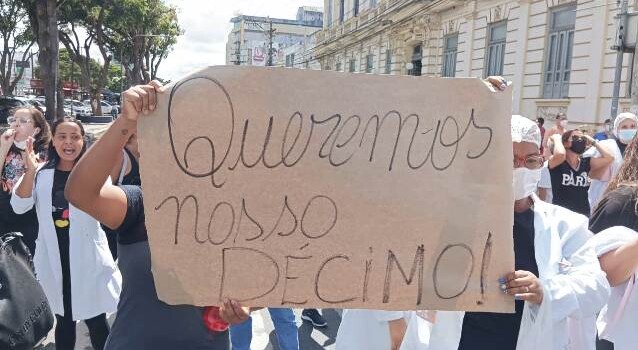 Queremos
nosso
DÉCIMO!
PARIS